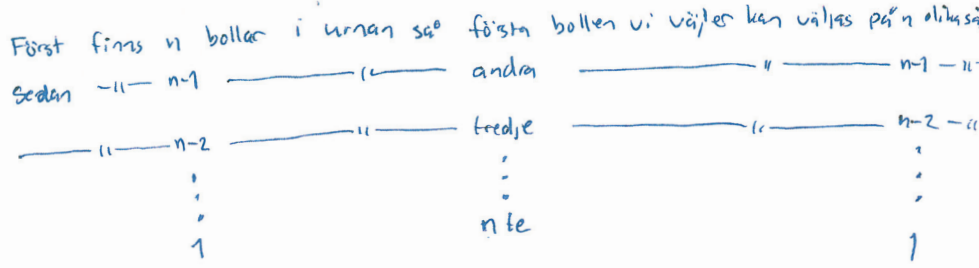 Först finns n bollar i urnan så första bollen vi väljer kan väljas på n olika sä
Sedan —||— n-1 —||— andra —||— n-1 —||—
—||— n-2 —||— tredje —||— n-2 —||—
⋮ ⋮ ⋮
n te
1 1